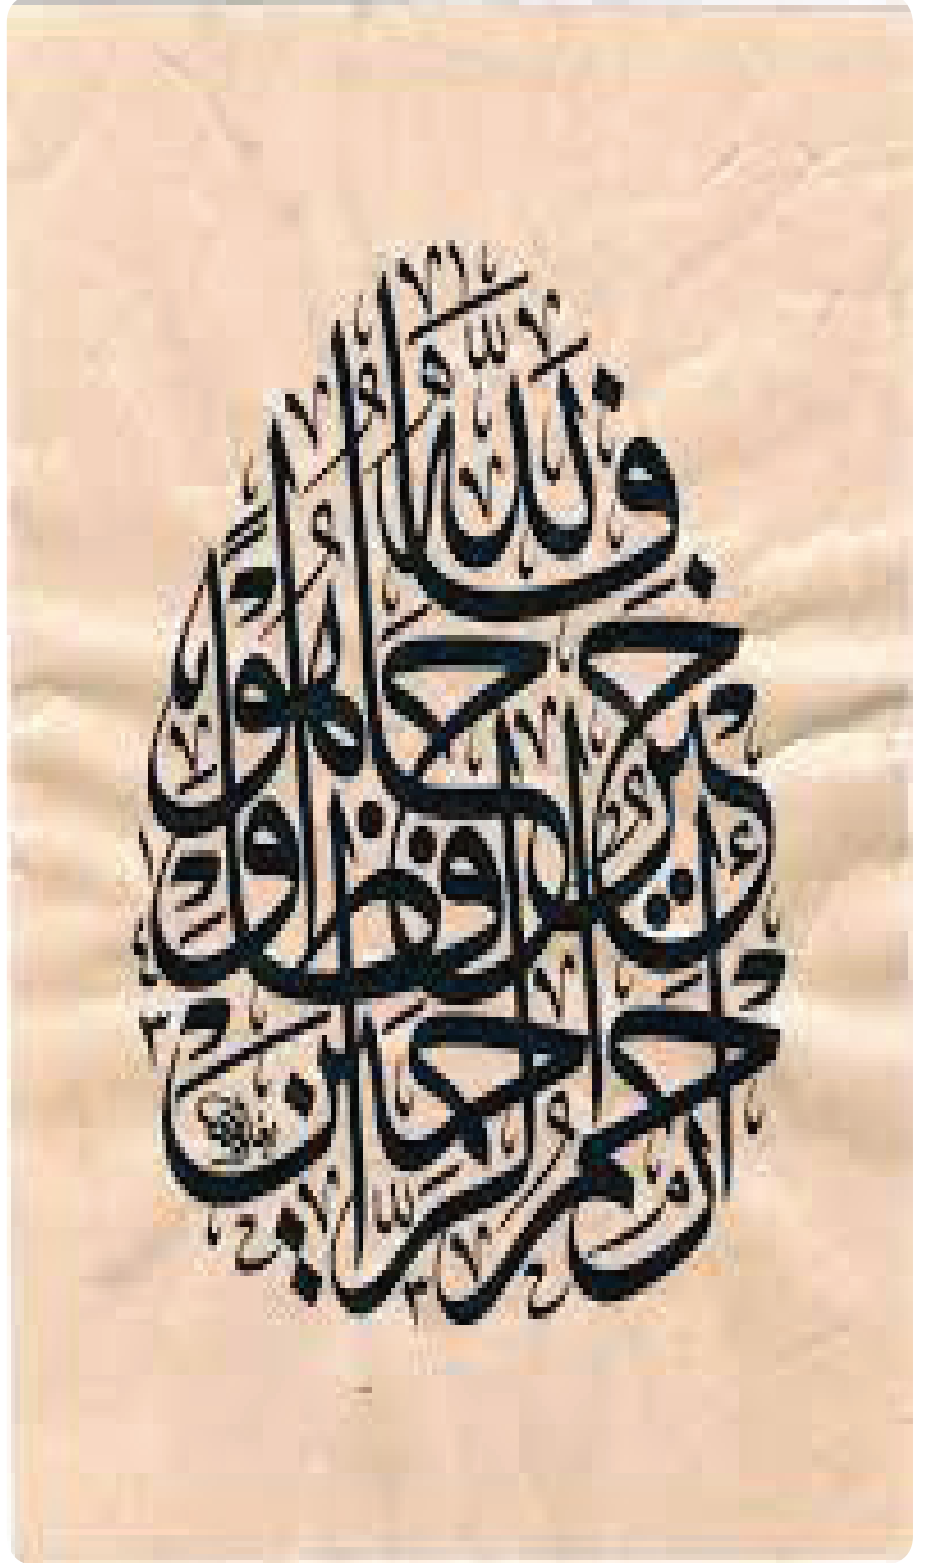 فالله
خير حافظا وهو
أرحم الراحمين